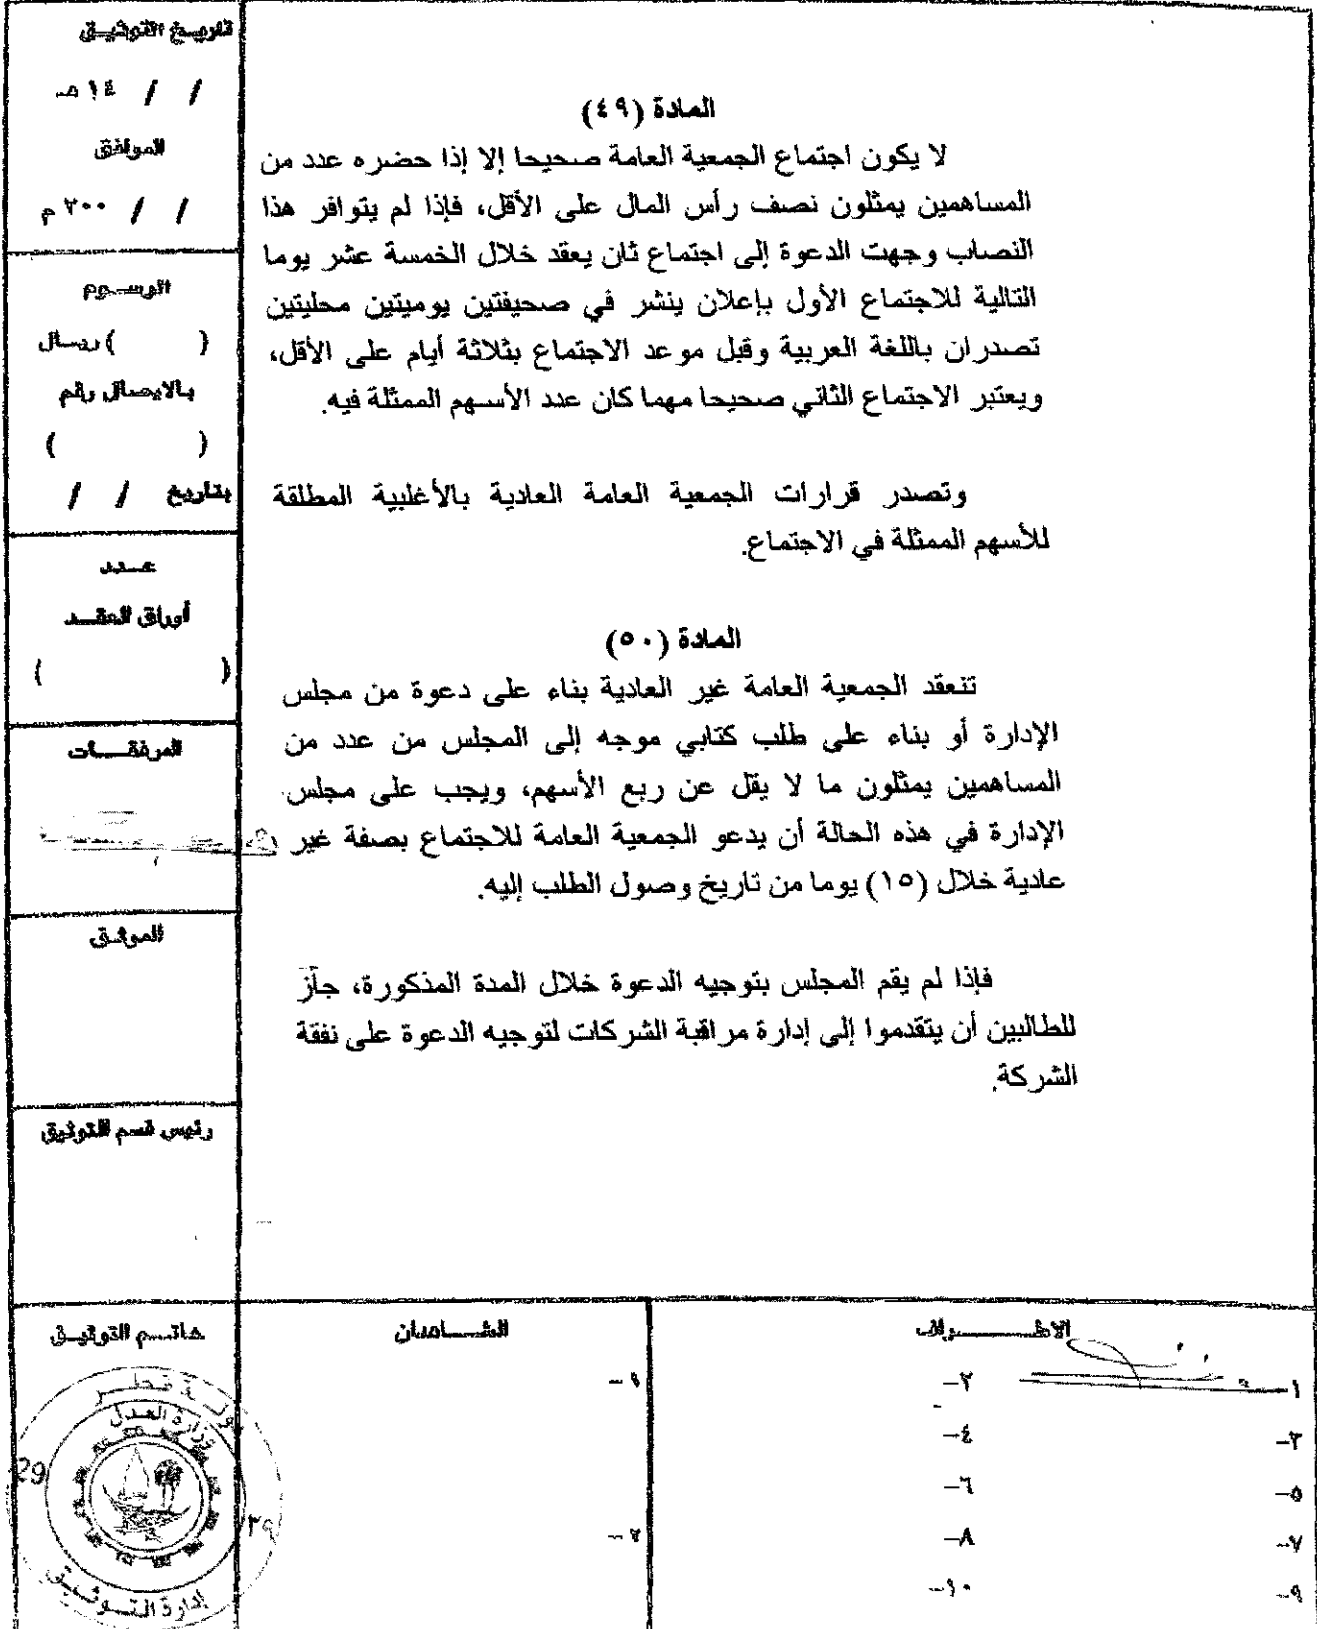 المادة (٤٩)
لا يكون اجتماع الجمعية العامة صحيحا إلا إذا حضره عدد من
المساهمين يمثلون نصف رأس المال على الأقل، فإذا لم يتوافر هذا
النصاب وجهت الدعوة إلى اجتماع ثان يعقد خلال الخمسة عشر يوما
التالية للاجتماع الأول بإعلان ينشر في صحيفتين يوميتين محليتين
تصدران باللغة العربية وقبل موعد الاجتماع بثلاثة أيام على الأقل،
ويعتبر الاجتماع الثاني صحيحا مهما كان عدد الأسهم الممثلة فيه.
وتصدر قرارات الجمعية العامة العادية بالأغلبية المطلقة
للأسهم الممثلة في الاجتماع.
المادة (٥٠)
تنعقد الجمعية العامة غير العادية بناء على دعوة من مجلس
الإدارة أو بناء على طلب كتابي موجه إلى المجلس من عدد من
المساهمين يمثلون ما لا يقل عن ربع الأسهم، ويجب على مجلس
الإدارة في هذه الحالة أن يدعو الجمعية العامة للاجتماع بصفة غير
عادية خلال (١٥) يوما من تاريخ وصول الطلب إليه.
فإذا لم يقم المجلس بتوجيه الدعوة خلال المدة المذكورة، جاز
للطالبين أن يتقدموا إلى إدارة مراقبة الشركات لتوجيه الدعوة على نفقة
الشركة.
تاريخ التوثيق
/ / ١٤هـ
الموافق
/ / ٢٠٠م
الرسوم
( ) ريال
بالايصال رقم
( )
بتاريخ / /
عدد
أوراق العقد
( )
المرفقات
الموثق
رئيس قسم التوثيق
الاطراف
١-
٢-
٣-
٤-
٥-
٦-
٧-
٨-
٩-
١٠-
الشاهدان
١-
٢-
خاتم التوثيق
دولة قطر
وزارة العدل
29
٢٩
إدارة التوثيق